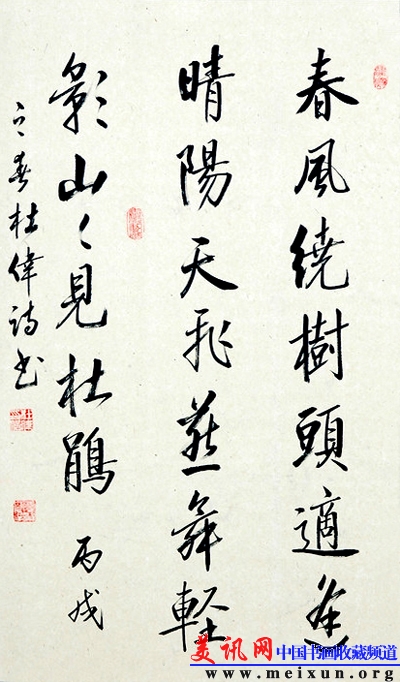 春風繞樹頭適逢
晴陽天飛燕舞輕
影山々見杜鵑 丙戌
之春杜偉诗书
美讯网 中国书画收藏频道
www.meixun.org